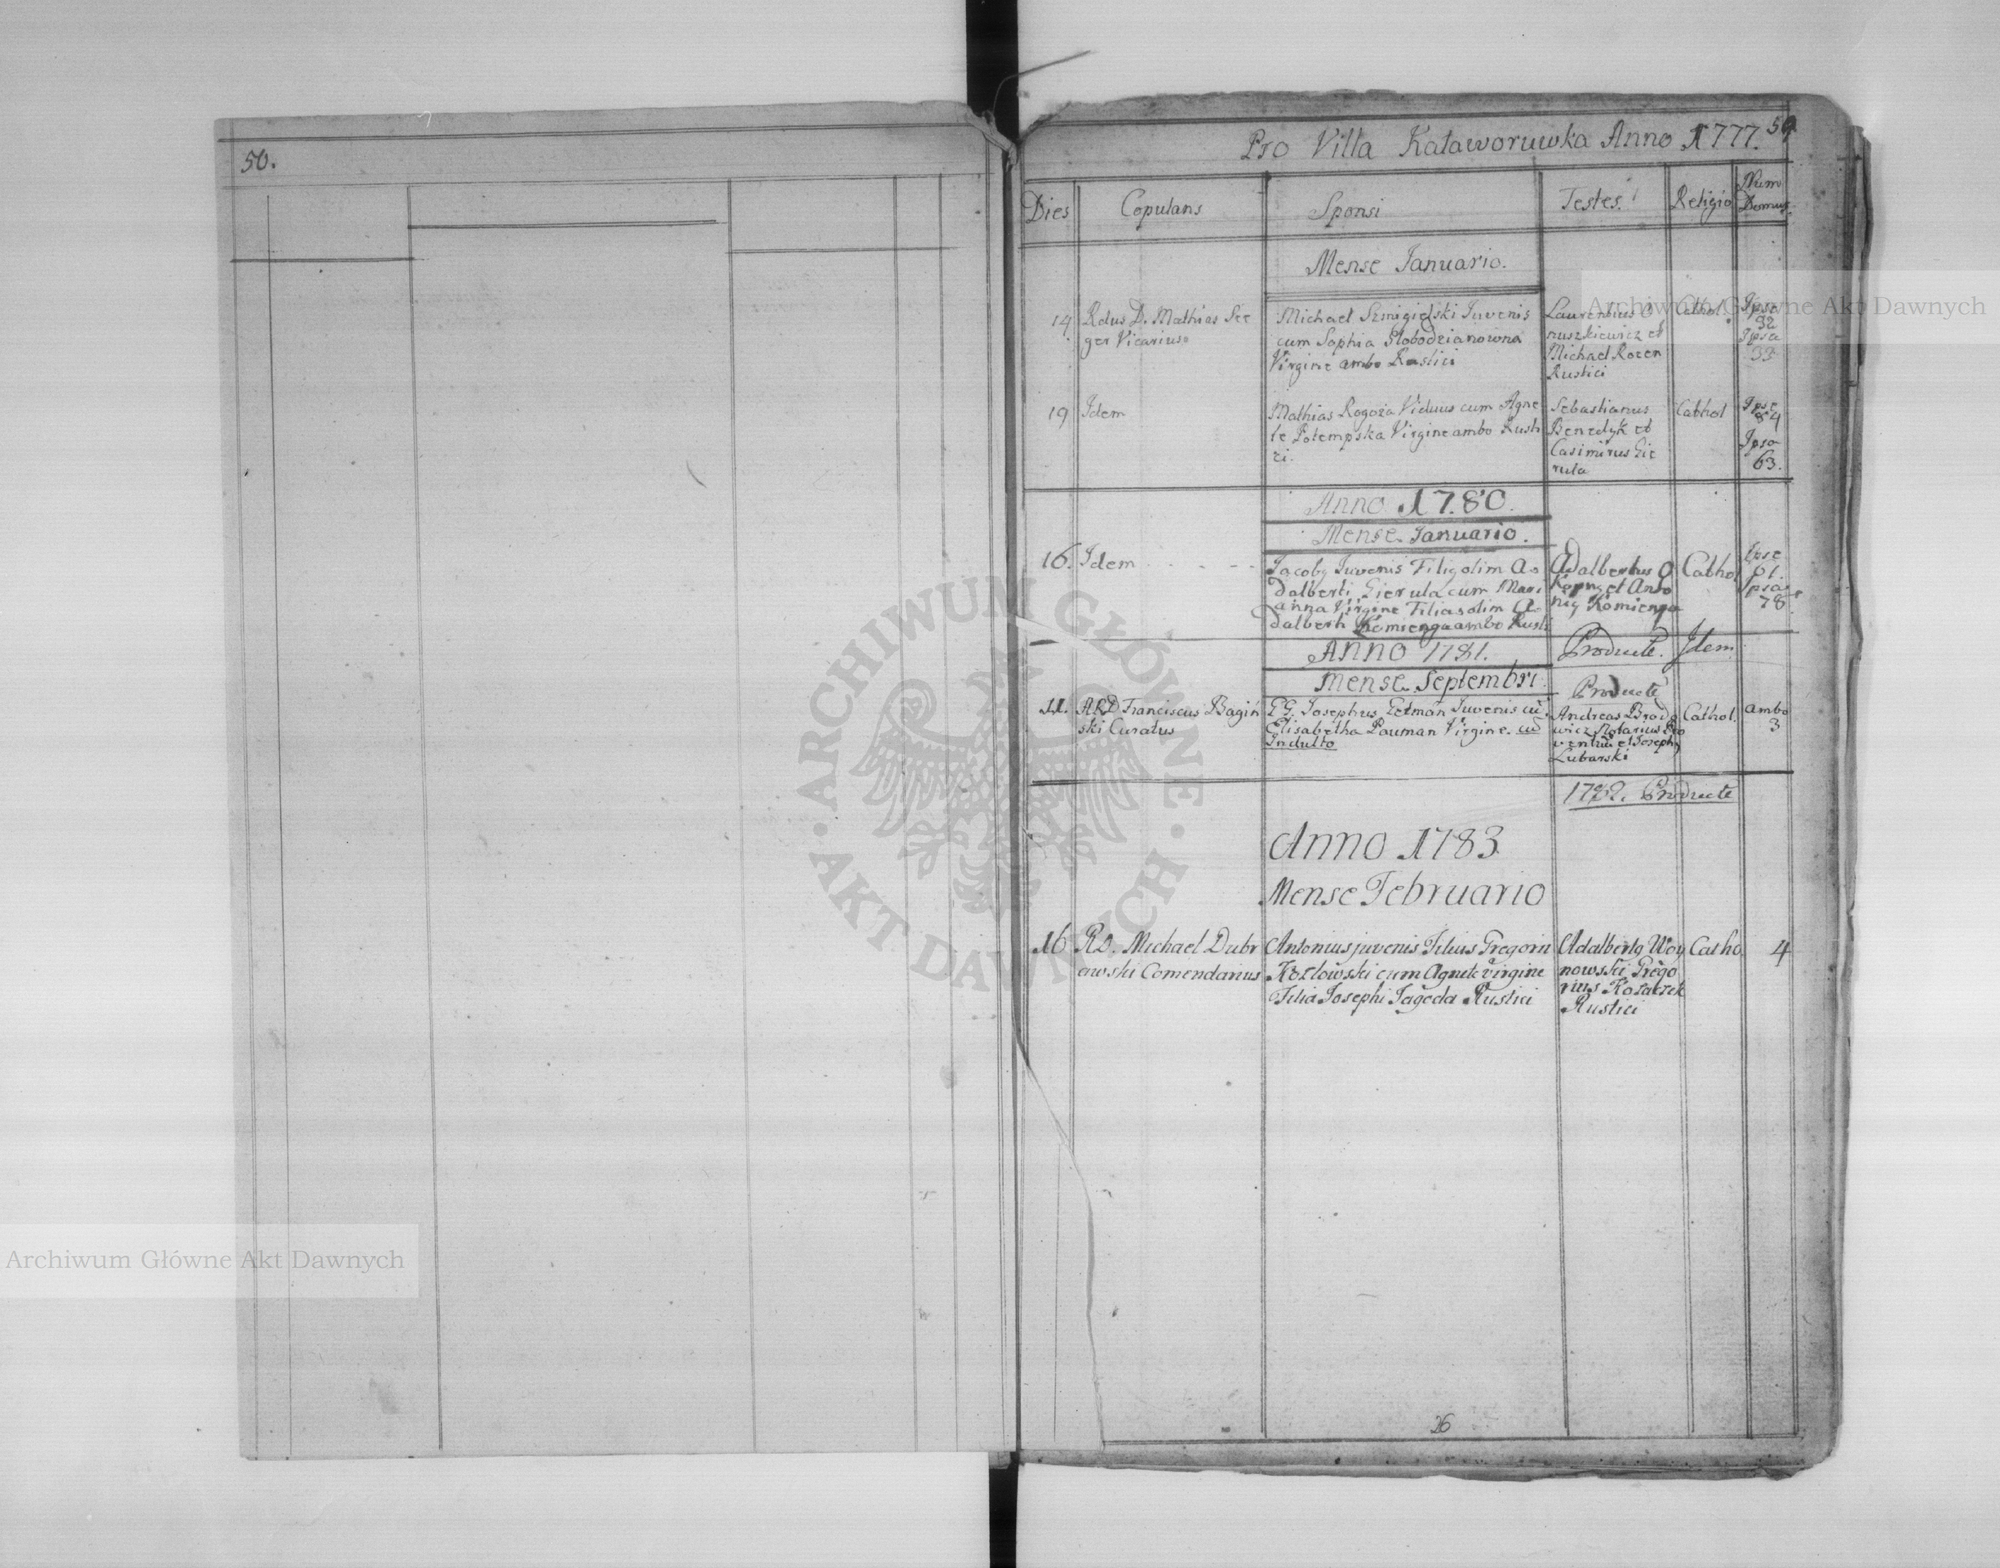 50.
Pro Villa Kataworuwka Anno 1777.
Dies
Copulans
Sponsi
Testes.
Religio
Num
Domus.
Mense Januario.
14
Rdus D. Mathias See
ger Vicarius
Michael Szmigielski Juvenis
cum Sophia Slobodzianowna
Virgine ambo Rustici
Laurentius
nuszkiewicz et
Michael Rozen
Rustici
Cathol.
Ipse
32
Ipsa
33
19
Idem
Mathias Rogoza Viduus cum Agne
te Potempska Virgine ambo Rusti
ci.
Sebastianus
Benedyk et
Casimirus Gie
rula
Cathol
Ipse
84
Ipsa
63.
Anno 1780.
Mense Januario.
16.
Idem
Jacobg Juvenis Filig olim A-
dalberti Gierula cum Mari
anna Virgine Filia olim A-
dalberti Komienga ambo Rusti
Adalbertus
et Anto
nig Komienga
Cathol
Ipse
61.
Ipsa
78.
Anno 1781.
Producte. Idem
Mense Septembri
Producte
11.
ARD Franciscus Bagiń
ski Curatus
GG. Josephus Petman Juvenis cū
Elisabetha Pauman Virgine. cū
Indulto
Andreas Brod
wicz Notarius Pro
ventuū et Joseph
Lubarski
Cathol.
ambo
3
1782. Producte
Anno 1783
Mense Februario
16
RD. Michael Dubr
awski Comendarius
Antonius juvenis Filius Gregorii
Kozlowski cum Agnete virgine
Filia Josephi Jagoda Rustici
Adalbertg Woy
nowski Grego
rius Kozaczek
Rustici
Catho
4
26
Archiwum Główne Akt Dawnych
Archiwum Główne Akt Dawnych
ARCHIWUM GŁÓWNE
AKT DAWNYCH